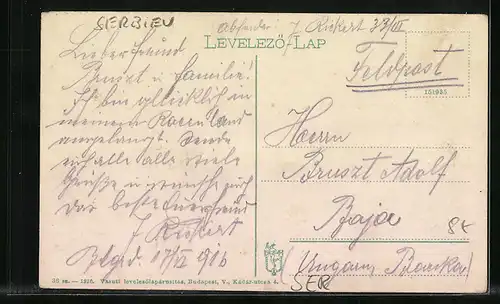 SERBIEN
Absender: J Rickert 33/III
LEVELEZŐ-LAP
Feldpost
151935
Lieber Freund
Bruszt u. Familie!
Ich bin glücklich in
meinem Rosen Land
angelangt. Sende
euch alle viele
Grüße u. wünsche euch
das beste Euer Freund
J Rickert
Belgd 17/ 916
Herrn
Bruszt Adolf
Baja
(Ungarn Bacska)
SER
1916. — Vasuti levelezőlapárusitás, Budapest, V., Kádár-utcza 4.